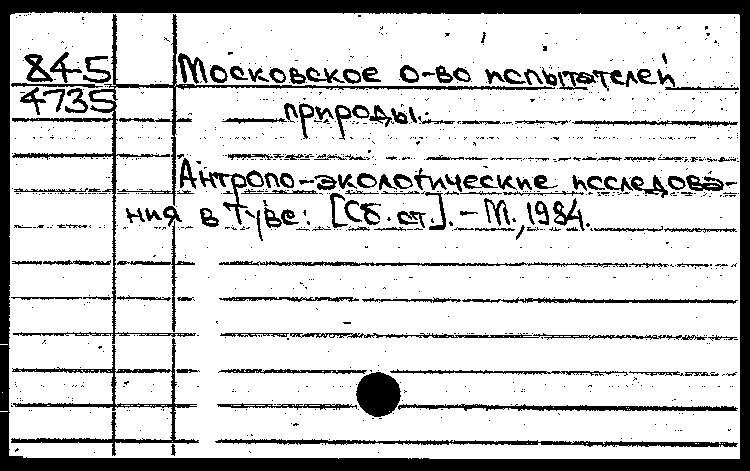 84-5 Московское о-во испытателей
4735 природы.
Антропо-экологические исследова-
ния в Туве: [Сб. ст.]. - М., 1984.